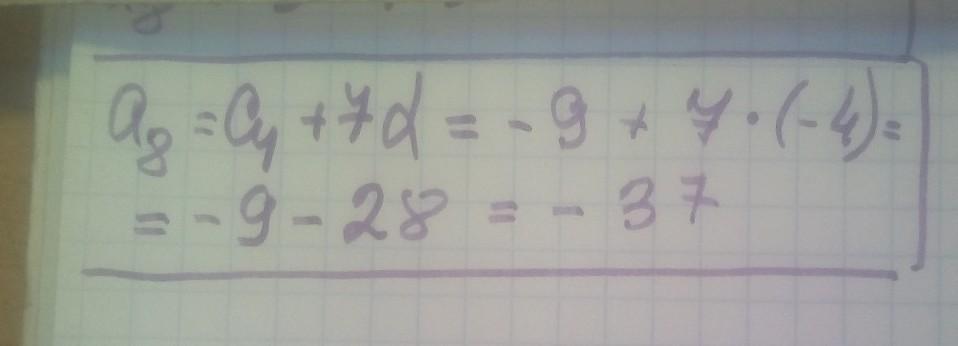 a₈ = a₁ + 7d = - 9 + 7 · (- 4) =
= - 9 - 28 = - 37